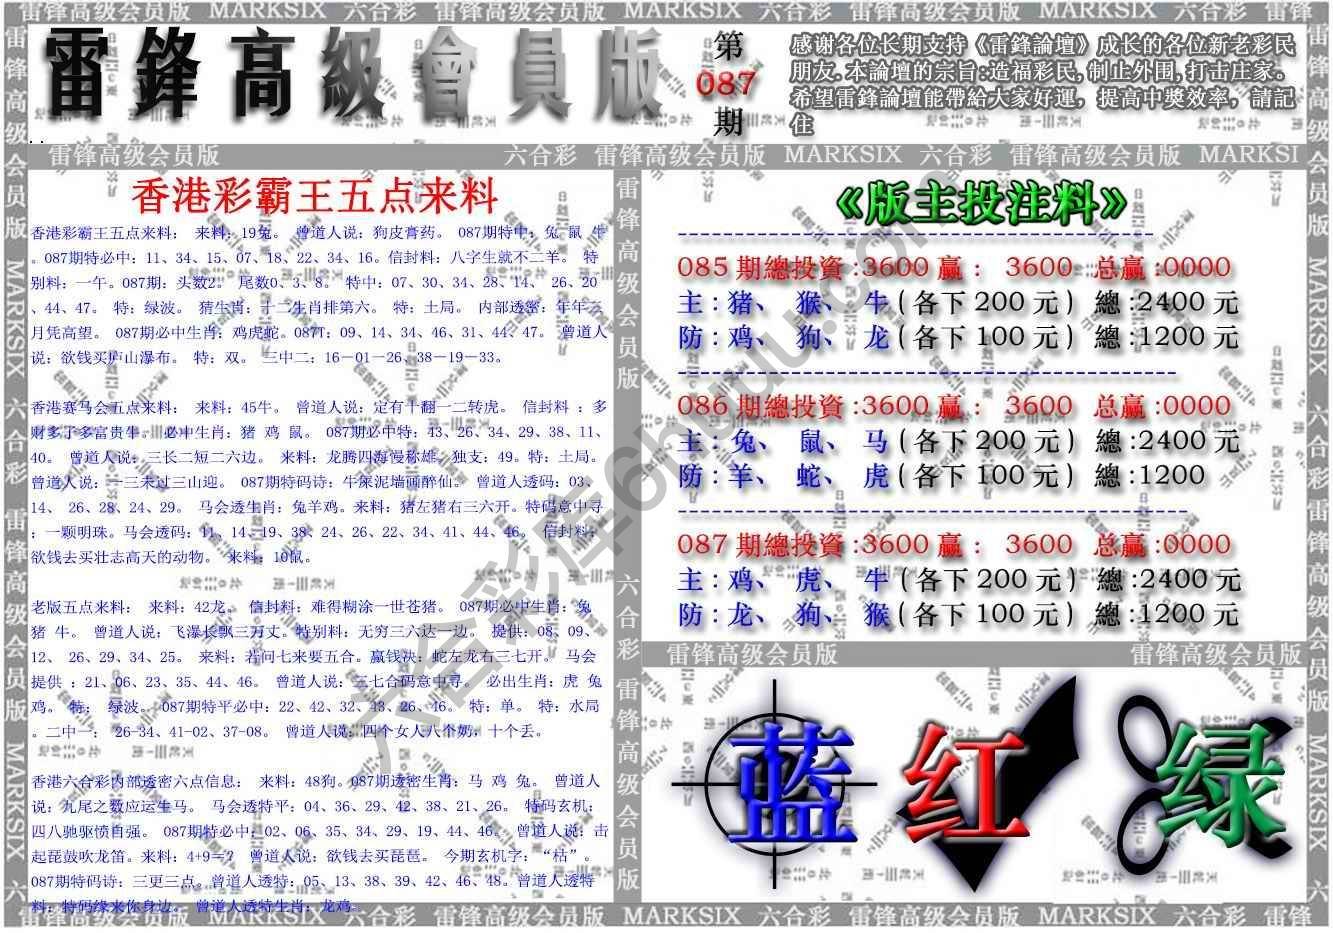 雷锋高级会员版 MARKSIX 六合彩 雷锋高级会员版 MARKSIX 六合彩 雷锋高级会员版 MARKSIX 六合彩 雷锋
雷鋒高級會員版
第
087
期
感谢各位长期支持《雷鋒論壇》成长的各位新老彩民
朋友.本論壇的宗旨:造福彩民,制止外围,打击庄家。
希望雷鋒論壇能帶給大家好運，提高中獎效率，請記
住
雷锋高级会员版 六合彩 雷锋高级会员版 MARKSIX 六合彩 雷锋高级会员版 MARKSI
香港彩霸王五点来料
香港彩霸王五点来料： 来料：19兔。 曾道人说：狗皮膏药。 087期特中：兔 鼠 牛
。087期特必中：11、34、15、07、18、22、34、16。信封料：八字生就不二羊。 特
别料：一午。087期：头数2。 尾数0、3、8。 特中：07、30、34、28、14、 26、20
、44、47。 特：绿波。 猜生肖：十二生肖排第六。 特：土局。 内部透密：年年三
月凭高望。 087期必中生肖：鸡虎蛇。087T：09、14、34、46、31、44、47。 曾道人
说：欲钱买庐山瀑布。 特：双。 三中二：16－01－26、38－19－33。
香港赛马会五点来料： 来料：45牛。 曾道人说：定有十翻一二转虎。 信封料 ：多
财多了多富贵牛。 必中生肖：猪 鸡 鼠。 087期必中特：43、26、34、29、38、11、
40。 曾道人说：三长二短二六边。 来料：龙腾四海慢称雄。独支：49。特：土局。
曾道人说：一三未过三山迎。 087期特码诗：牛屎泥墙画醉仙。 曾道人透码：03、
14、 26、28、24、29。 马会透生肖：兔羊鸡。来料：猪左猪右三六开。特码意中寻
：一颗明珠。马会透码：11、14、19、38、24、26、22、34、41、44、46。 信封料：
欲钱去买壮志高天的动物。 来料：10鼠。
老版五点来料： 来料：42龙。 信封料：难得糊涂一世苍猪。 087期必中生肖：兔
猪 牛。 曾道人说：飞瀑长飘三万丈。特别料：无穷三六达一边。 提供：08、09、
12、 26、29、34、25。 来料：若问七来要五合。赢钱决：蛇左龙右三七开。 马会
提供 ：21、06、23、35、44、46。 曾道人说：三七合码意中寻。 必出生肖：虎 兔
鸡。 特： 绿波。 087期特平必中：22、42、32、43、26、46。 特：单。 特：水局
。二中一： 26-34、41-02、37-08。 曾道人说：四个女人八个奶，十个丢。
香港六合彩内部透密六点信息： 来料：48狗。087期透密生肖：马 鸡 兔。 曾道人
说：九尾之数应运生马。 马会透特平：04、36、29、42、38、21、26。 特码玄机：
四八驰驱愤自强。 087期特必中：02、06、35、34、29、19、44、46。 曾道人说：击
起琵鼓吹龙笛。来料：4+9＝？ 曾道人说：欲钱去买琵琶。 今期玄机字：“枯”。
087期特码诗：三更三点。曾道人透特：05、13、38、39、42、46、48。曾道人透特
料：特码缘来你身边。 曾道人透特生肖：龙鸡
《版主投注料》
085期總投資:3600赢： 3600 总赢:0000
主：猪、 猴、 牛(各下200元) 總:2400元
防：鸡、 狗、 龙(各下100元) 總:1200元
086期總投資:3600赢： 3600 总赢:0000
主：兔、 鼠、 马(各下200元) 總:2400元
防：羊、 蛇、 虎(各下100元) 總:1200
087期總投資:3600赢： 3600 总赢:0000
主：鸡、 虎、 牛(各下200元) 總:2400元
防：龙、 狗、 猴(各下100元) 總:1200元
雷锋高级会员版 雷锋高级会员版
蓝 红 绿
雷锋高级会员版 MARKSIX 六合彩 雷锋高级会员版 MARKSIX 六合彩 雷锋高级会员版 MARKSIX 六合彩 雷锋